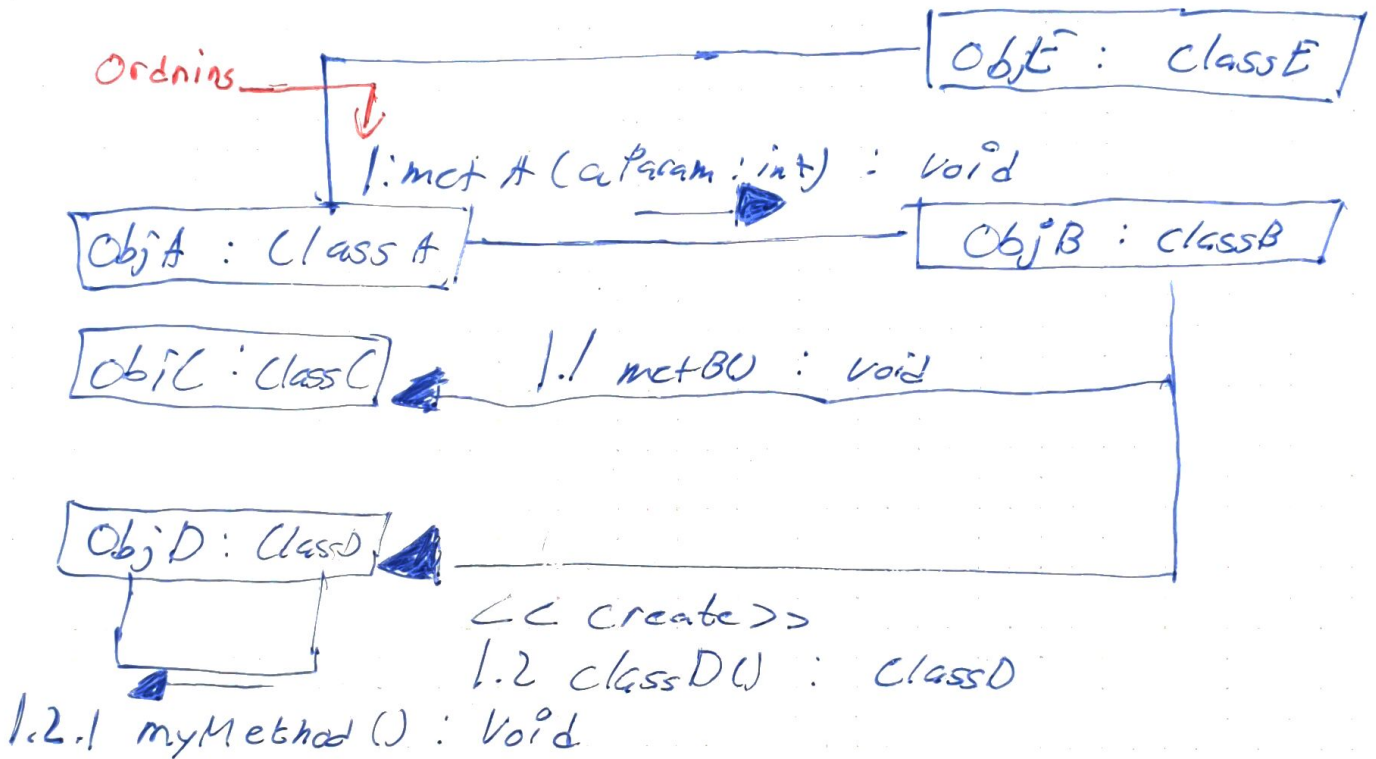 ObjE : ClassE
Ordning
1: metA (aParam : int) : void
ObjA : ClassA
ObjB : classB
ObjC : ClassC
1.1 metB() : void
ObjD : ClassD
<< create >>
1.2 classD() : ClassD
1.2.1 myMethod () : Void